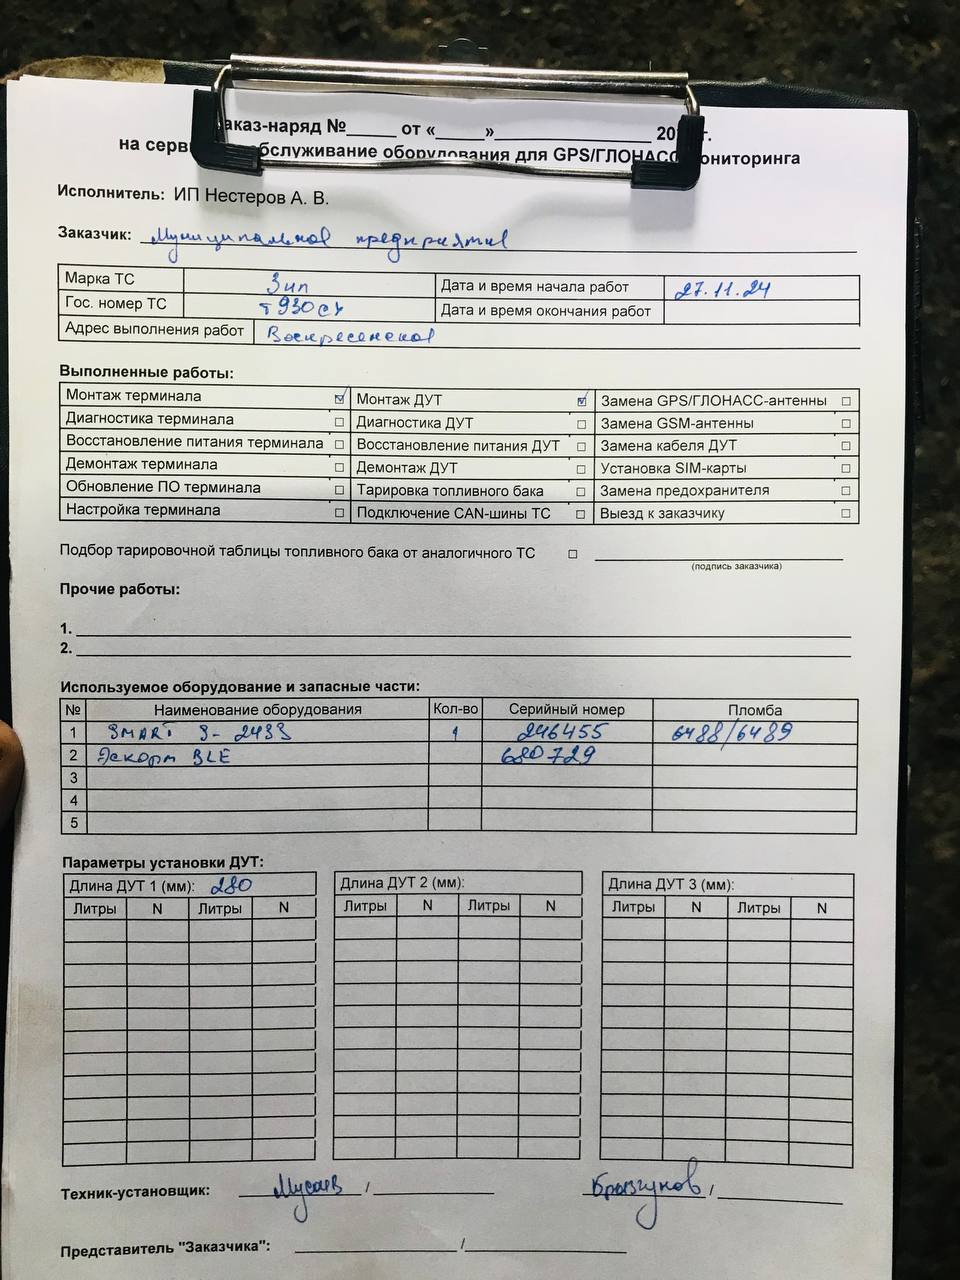 аказ-наряд №_____ от «_____»________________ 20 г.
на серв бслуживание оборудования для GPS/ГЛОНАСС ониторинга
Исполнитель: ИП Нестеров А. В.
Заказчик: Муниципальное предприятие
Марка ТС Зил Дата и время начала работ 27.11.24
Гос. номер ТС т930су Дата и время окончания работ
Адрес выполнения работ
Выполненные работы:
Монтаж терминала ☑ Монтаж ДУТ ☑ Замена GPS/ГЛОНАСС-антенны ☐
Диагностика терминала ☐ Диагностика ДУТ ☐ Замена GSM-антенны ☐
Восстановление питания терминала ☐ Восстановление питания ДУТ ☐ Замена кабеля ДУТ ☐
Демонтаж терминала ☐ Демонтаж ДУТ ☐ Установка SIM-карты ☐
Обновление ПО терминала ☐ Тарировка топливного бака ☐ Замена предохранителя ☐
Настройка терминала ☐ Подключение CAN-шины ТС ☐ Выезд к заказчику ☐
Подбор тарировочной таблицы топливного бака от аналогичного ТС ☐
(подпись заказчика)
Прочие работы:
1.
2.
Используемое оборудование и запасные части:
№ Наименование оборудования Кол-во Серийный номер Пломба
1 SMART S-2433 1 246455 6488/6489
2 Эскорт BLE 680729
3
4
5
Параметры установки ДУТ:
Длина ДУТ 1 (мм): 280 Длина ДУТ 2 (мм): Длина ДУТ 3 (мм):
Литры N Литры N Литры N Литры N Литры N Литры N
Техник-установщик: Мусаев / Брызгунов /
Представитель "Заказчика": /